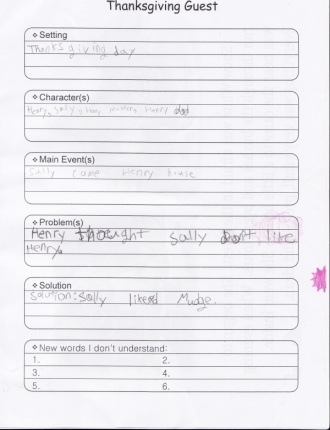 Thanksgiving Guest
❖ Setting
Thanks giving day
❖ Character(s)
Henry, Sally, Henry dad
❖ Main Event(s)
Sally came Henry house
❖ Problem(s)
Henry thought Sally don't like
Henry.
❖ Solution
Solution: Sally liked Mudge.
❖ New words I don't understand:
1. 2.
3. 4.
5. 6.